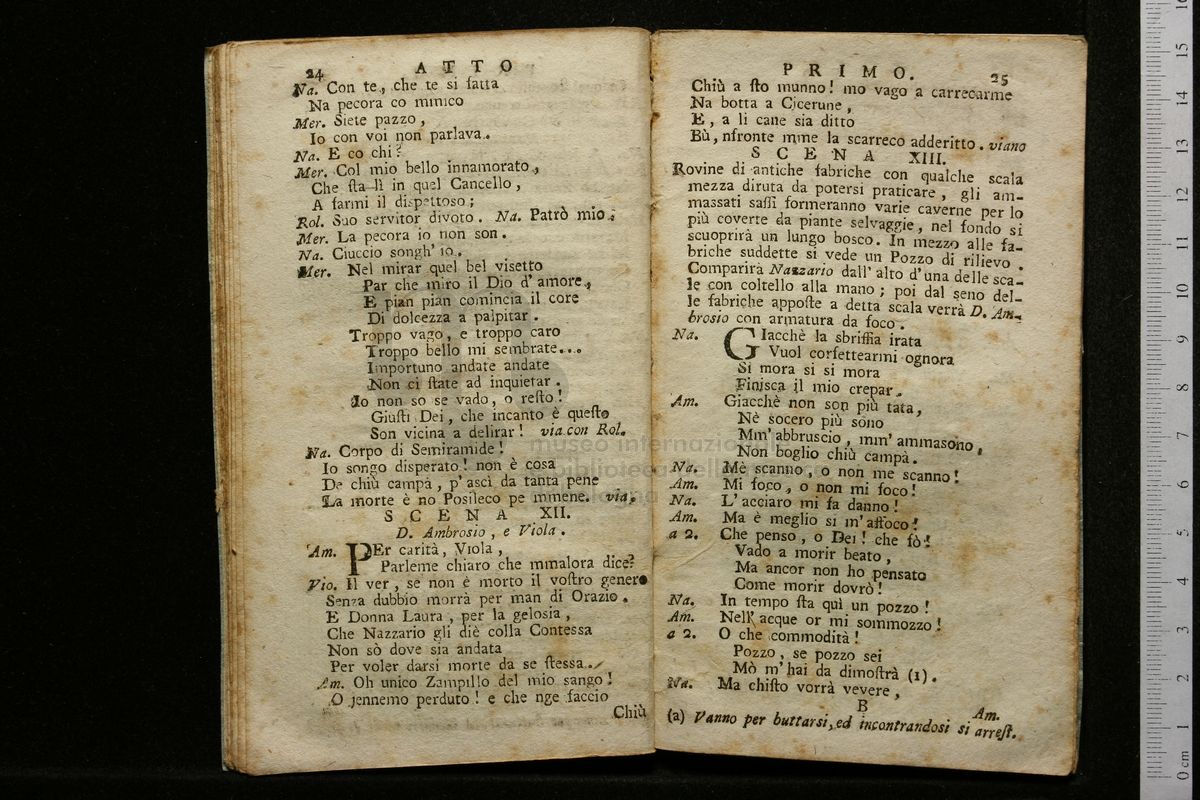 24 ATTO
Na. Con te, che te si fatta
Na pecora co mmico
Mer. Siete pazzo,
Io con voi non parlava.
Na. E co chi?
Mer. Col mio bello innamorato,
Che sta lì in quel Cancello,
A farmi il dispettoso;
Rol. Suo servitor divoto. Na. Patrò mio.
Mer. La pecora io non son.
Na. Ciuccio songh' io.
Mer. Nel mirar quel bel visetto
Par che miro il Dio d'amore,
E pian pian comincia il core
Di dolcezza a palpitar.
Troppo vago, e troppo caro
Troppo bello mi sembrate...
Importuno andate andate
Non ci state ad inquietar.
Io non so se vado, o resto!
Giusti Dei, che incanto è questo
Son vicina a delirar! via con Rol.
Na. Corpo di Semiramide!
Io songo disperato! non è cosa
De chiù campà, p' ascì da tanta pene
La morte è no Posileco pe mmene. via.
SCENA XII.
D. Ambrosio, e Viola.
Am. PEr carità, Viola,
Parleme chiaro che mmalora dice?
Vio. Il ver, se non è morto il vostro genero
Senza dubbio morrà per man di Orazio.
E Donna Laura, per la gelosia,
Che Nazzario gli diè colla Contessa
Non sò dove sia andata
Per voler darsi morte da se stessa.
Am. Oh unico Zampillo del mio sango!
O jennemo perduto! e che nge faccio
Chiù
PRIMO. 25
Chiù a sto munno! mo vago a carrecarme
Na botta a Cicerune,
E, a li cane sia ditto
Bù, nfronte mme la scarreco adderitto. viano
SCENA XIII.
Rovine di antiche fabriche con qualche scala
mezza diruta da potersi praticare, gli am-
massati sassi formeranno varie caverne per lo
più coverte da piante selvaggie, nel fondo si
scuoprirà un lungo bosco. In mezzo alle fa-
briche suddette si vede un Pozzo di rilievo.
Comparirà Nazzario dall' alto d'una delle sca-
le con coltello alla mano; poi dal seno del-
le fabriche apposte a detta scala verrà D. Am-
brosio con armatura da foco.
Na. GIacchè la sbriffia irata
Vuol corfettearmi ognora
Si mora si si mora
Finisca il mio crepar.
Am. Giacchè non son più tata,
Nè socero più sono
Mm' abbruscio, mm' ammasono,
Non boglio chiù campà.
Na. Mè scanno, o non me scanno!
Am. Mi foco, o non mi foco!
Na. L' acciaro mi fa danno!
Am. Ma è meglio si m' affoco!
a 2. Che penso, o Dei! che fò!
Vado a morir beato,
Ma ancor non ho pensato
Come morir dovrò!
Na. In tempo sta quì un pozzo!
Am. Nell' acque or mi sommozzo!
a 2. O che commodità!
Pozzo, se pozzo sei
Mò m' hai da dimostrà (1).
Na. Ma chisto vorrà vevere,
B
Am.
(a) Vanno per buttarsi, ed incontrandosi si arrest.
museo internazionale
e biblioteca della